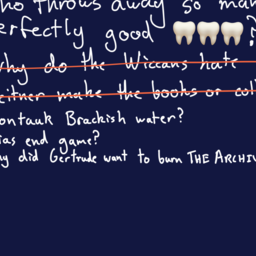 ho throws away so man
erfectly good 🦷🦷🦷?
hy do the Wiccans hate
eitner make the books or col
ontauk Brackish water?
ias end game?
y did Gertrude want to burn THE ARCHIV